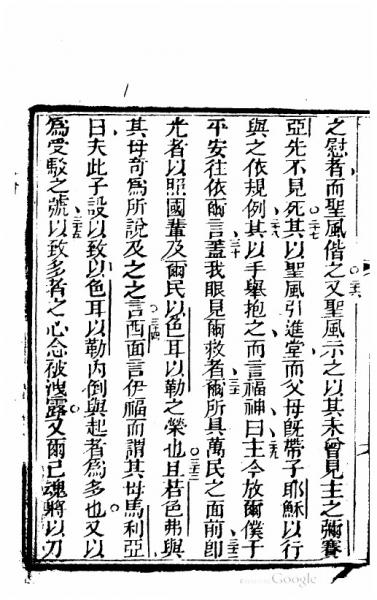 之慰者而聖風偕之又聖風示之以其未曾見主之彌賽
二六
亞先不見死其以聖風引進堂而父母旣帶子耶穌以行
二七
與之依規例其以手舉抱之而言福神曰主今放爾僕于
二八
二九
平安往依爾言蓋我眼見爾救者爾所具萬民之面前卽
三十
三一
光者以照國輩及爾民以色耳以勒之榮也且若色弗與
三二
三三
其母奇爲所說及之之言西面言伊福而謂其母馬利亞
三四
曰夫此子設以致以色耳以勒內倒與起者爲多也又以
爲受駁之號以致多者之心念被洩露又爾己魂將以刀
三五
Google